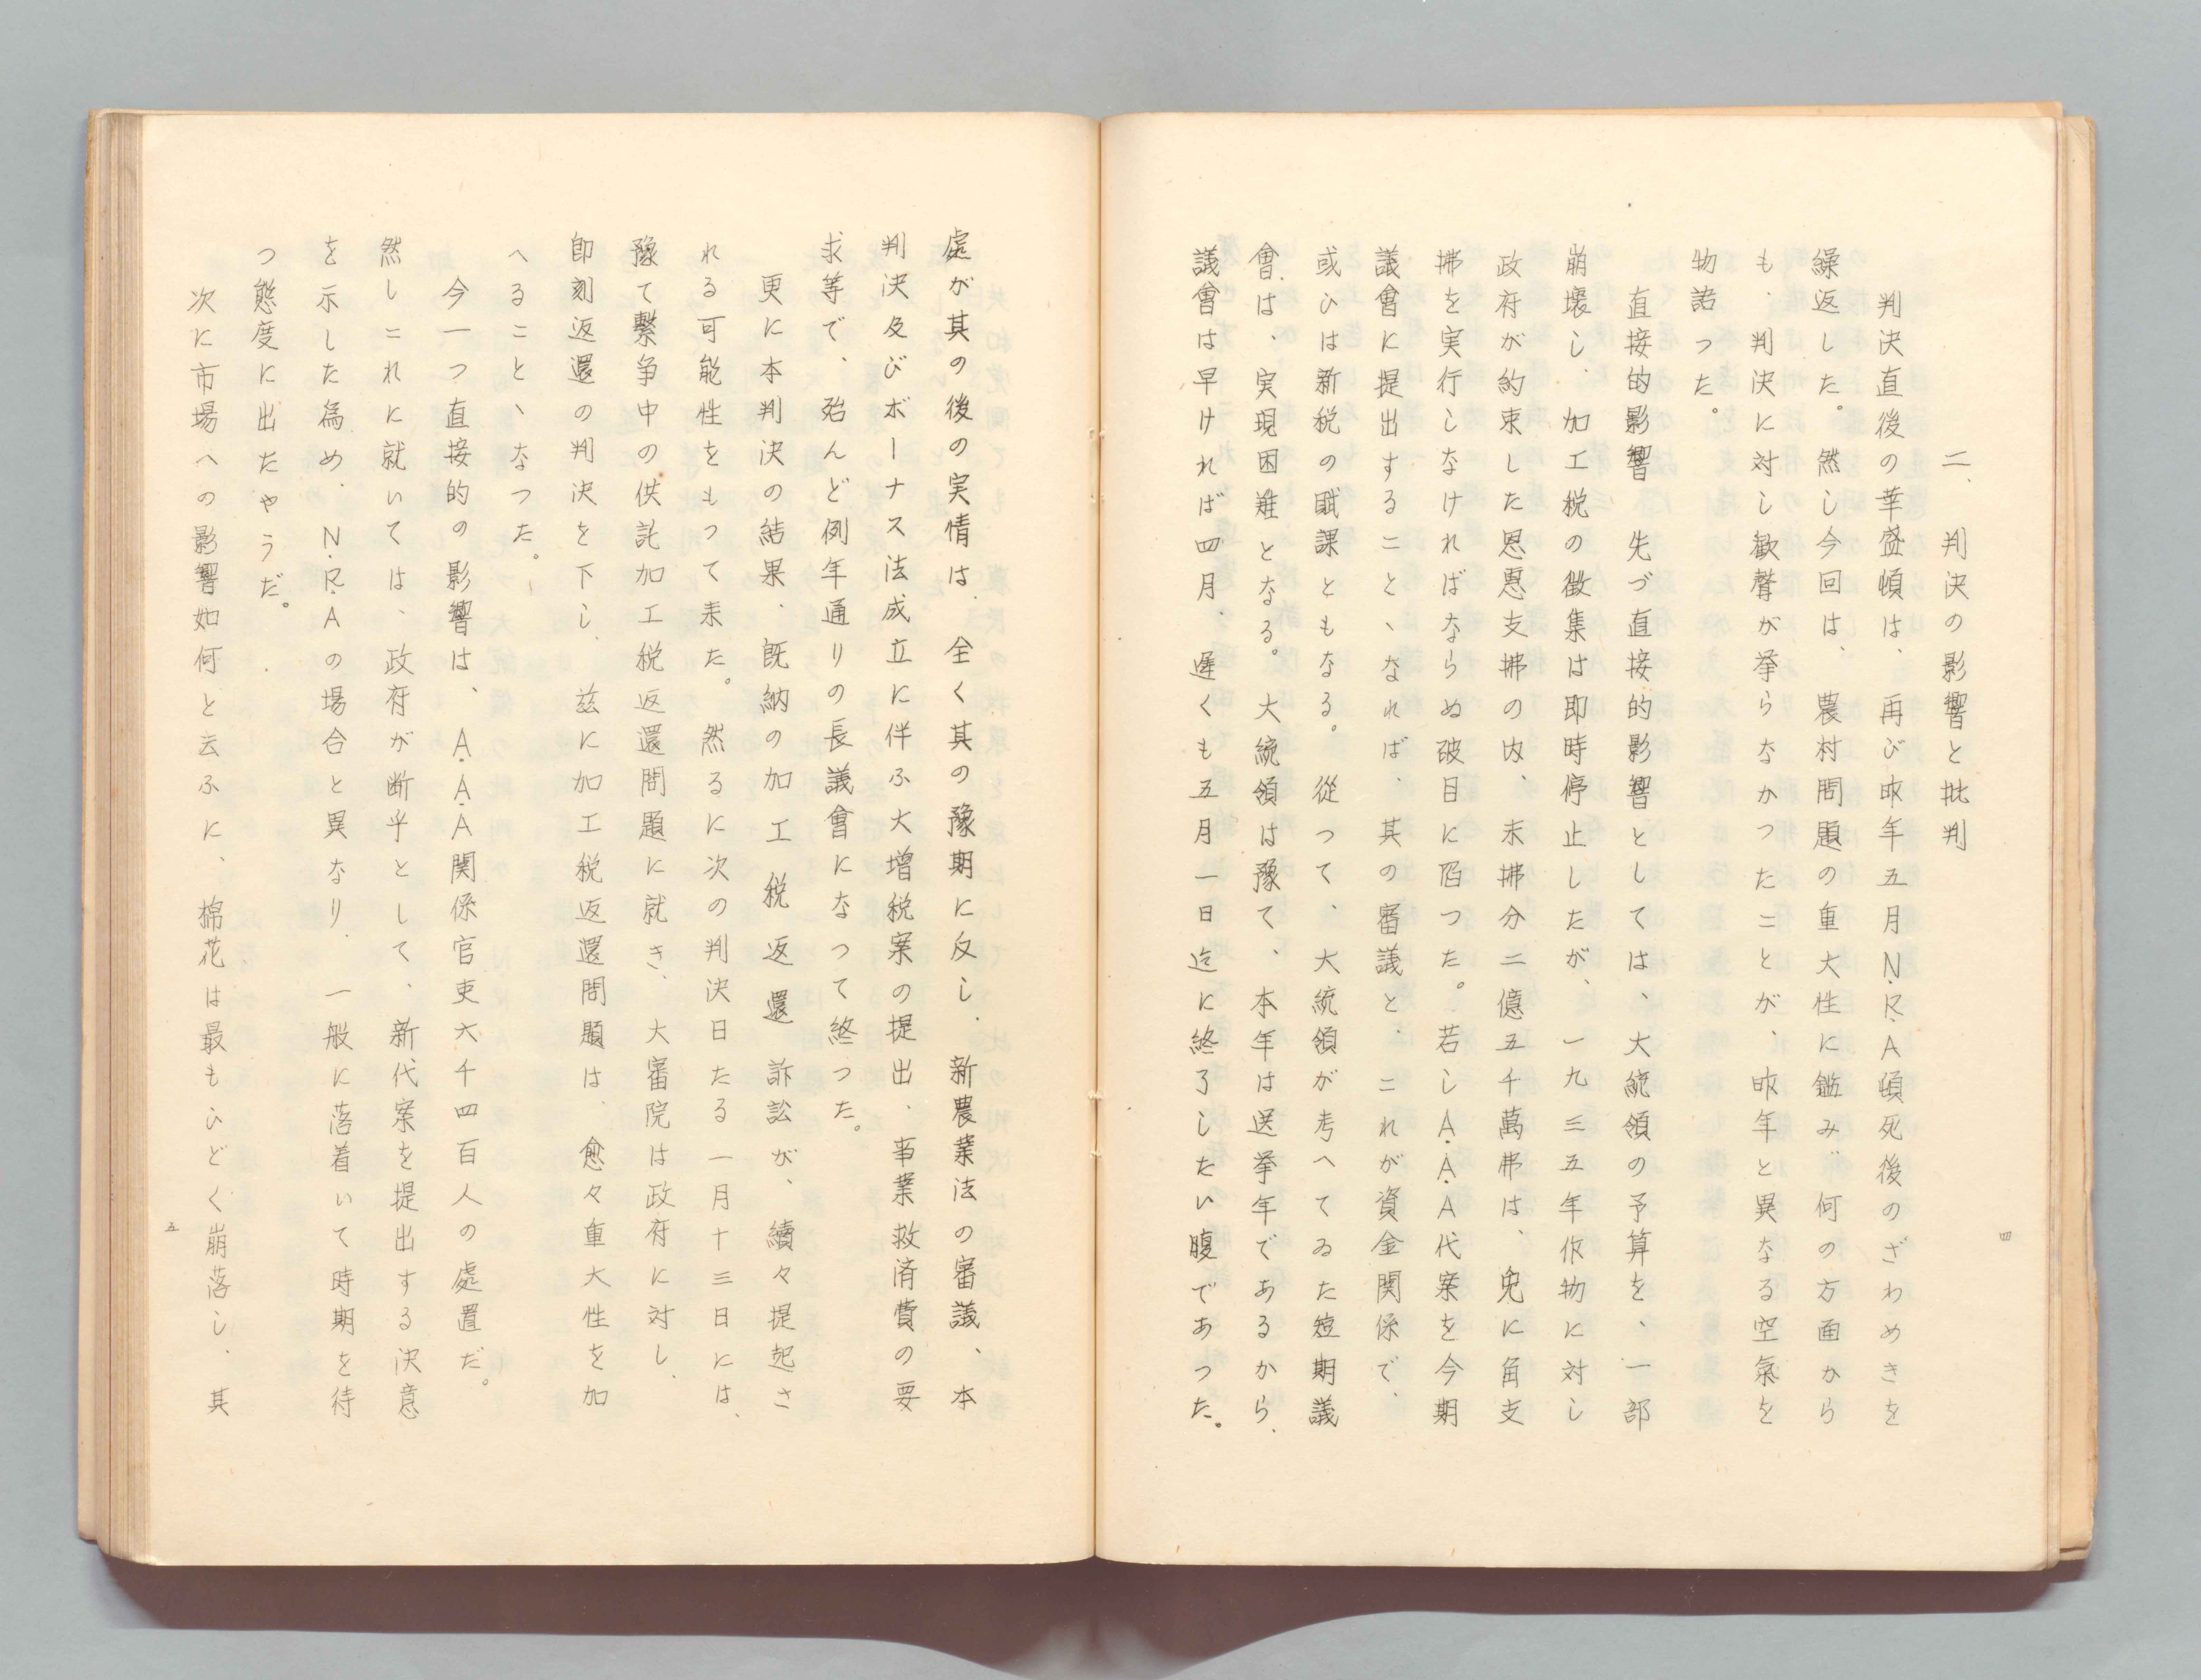 二、判決の影響と批判
判決直後の華盛頓は、再び昨年五月N.R.A頓死後のざわめきを
繰返した。然し今回は、農村問題の重大性に鑑み、何の方面から
も、判決に対し歓聲が挙らなかつたことが、昨年と異なる空氣を
物語つた。
直接的影響　先づ直接的影響としては、大統領の予算を、一部
崩壊し、加工税の徴集は即時停止したが、一九三五年作物に対し
政府が約束した恩恵支拂の内、未拂分二億五千萬弗は、兎に角支
拂を実行しなければならぬ破目に陷つた。若しA.A.A代案を今期
議會に提出すること、なれば、其の審議と、これが資金関係で、
或ひは新税の賦課ともなる。從つて、大統領が考へてゐた短期議
會は、実現困難となる。大統領は豫て、本年は選挙年であるから、
議會は早ければ四月、遅くも五月一日迄に終了したい腹であつた。
四
處が其の後の実情は、全く其の豫期に反し、新農業法の審議、本
判決及びボーナス法成立に伴ふ大増税案の提出、事業救済費の要
求等で、殆んど例年通りの長議會になつて終つた。
更に本判決の結果、既納の加工税返還訴訟が、續々提起さ
れる可能性をもつて来た。然るに次の判決日たる一月十三日には、
豫て繋争中の供託加工税返還問題に就き、大審院は政府に対し、
即刻返還の判決を下し、茲に加工税返還問題は、愈々重大性を加
へること、なつた。
今一つ直接的の影響は、A.A.A関係官吏六千四百人の處置だ。
然しこれに就いては、政府が断乎として、新代案を提出する決意
を示した為め、N.R.Aの場合と異なり、一般に落着いて時期を待
つ態度に出たやうだ。
次に市場への影響如何と云ふに、棉花は最もひどく崩落し、其
五